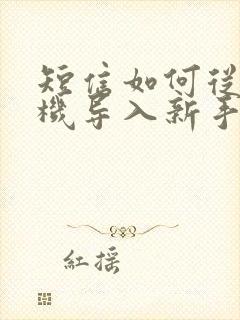 短信如何從
機导入新手
紅搖